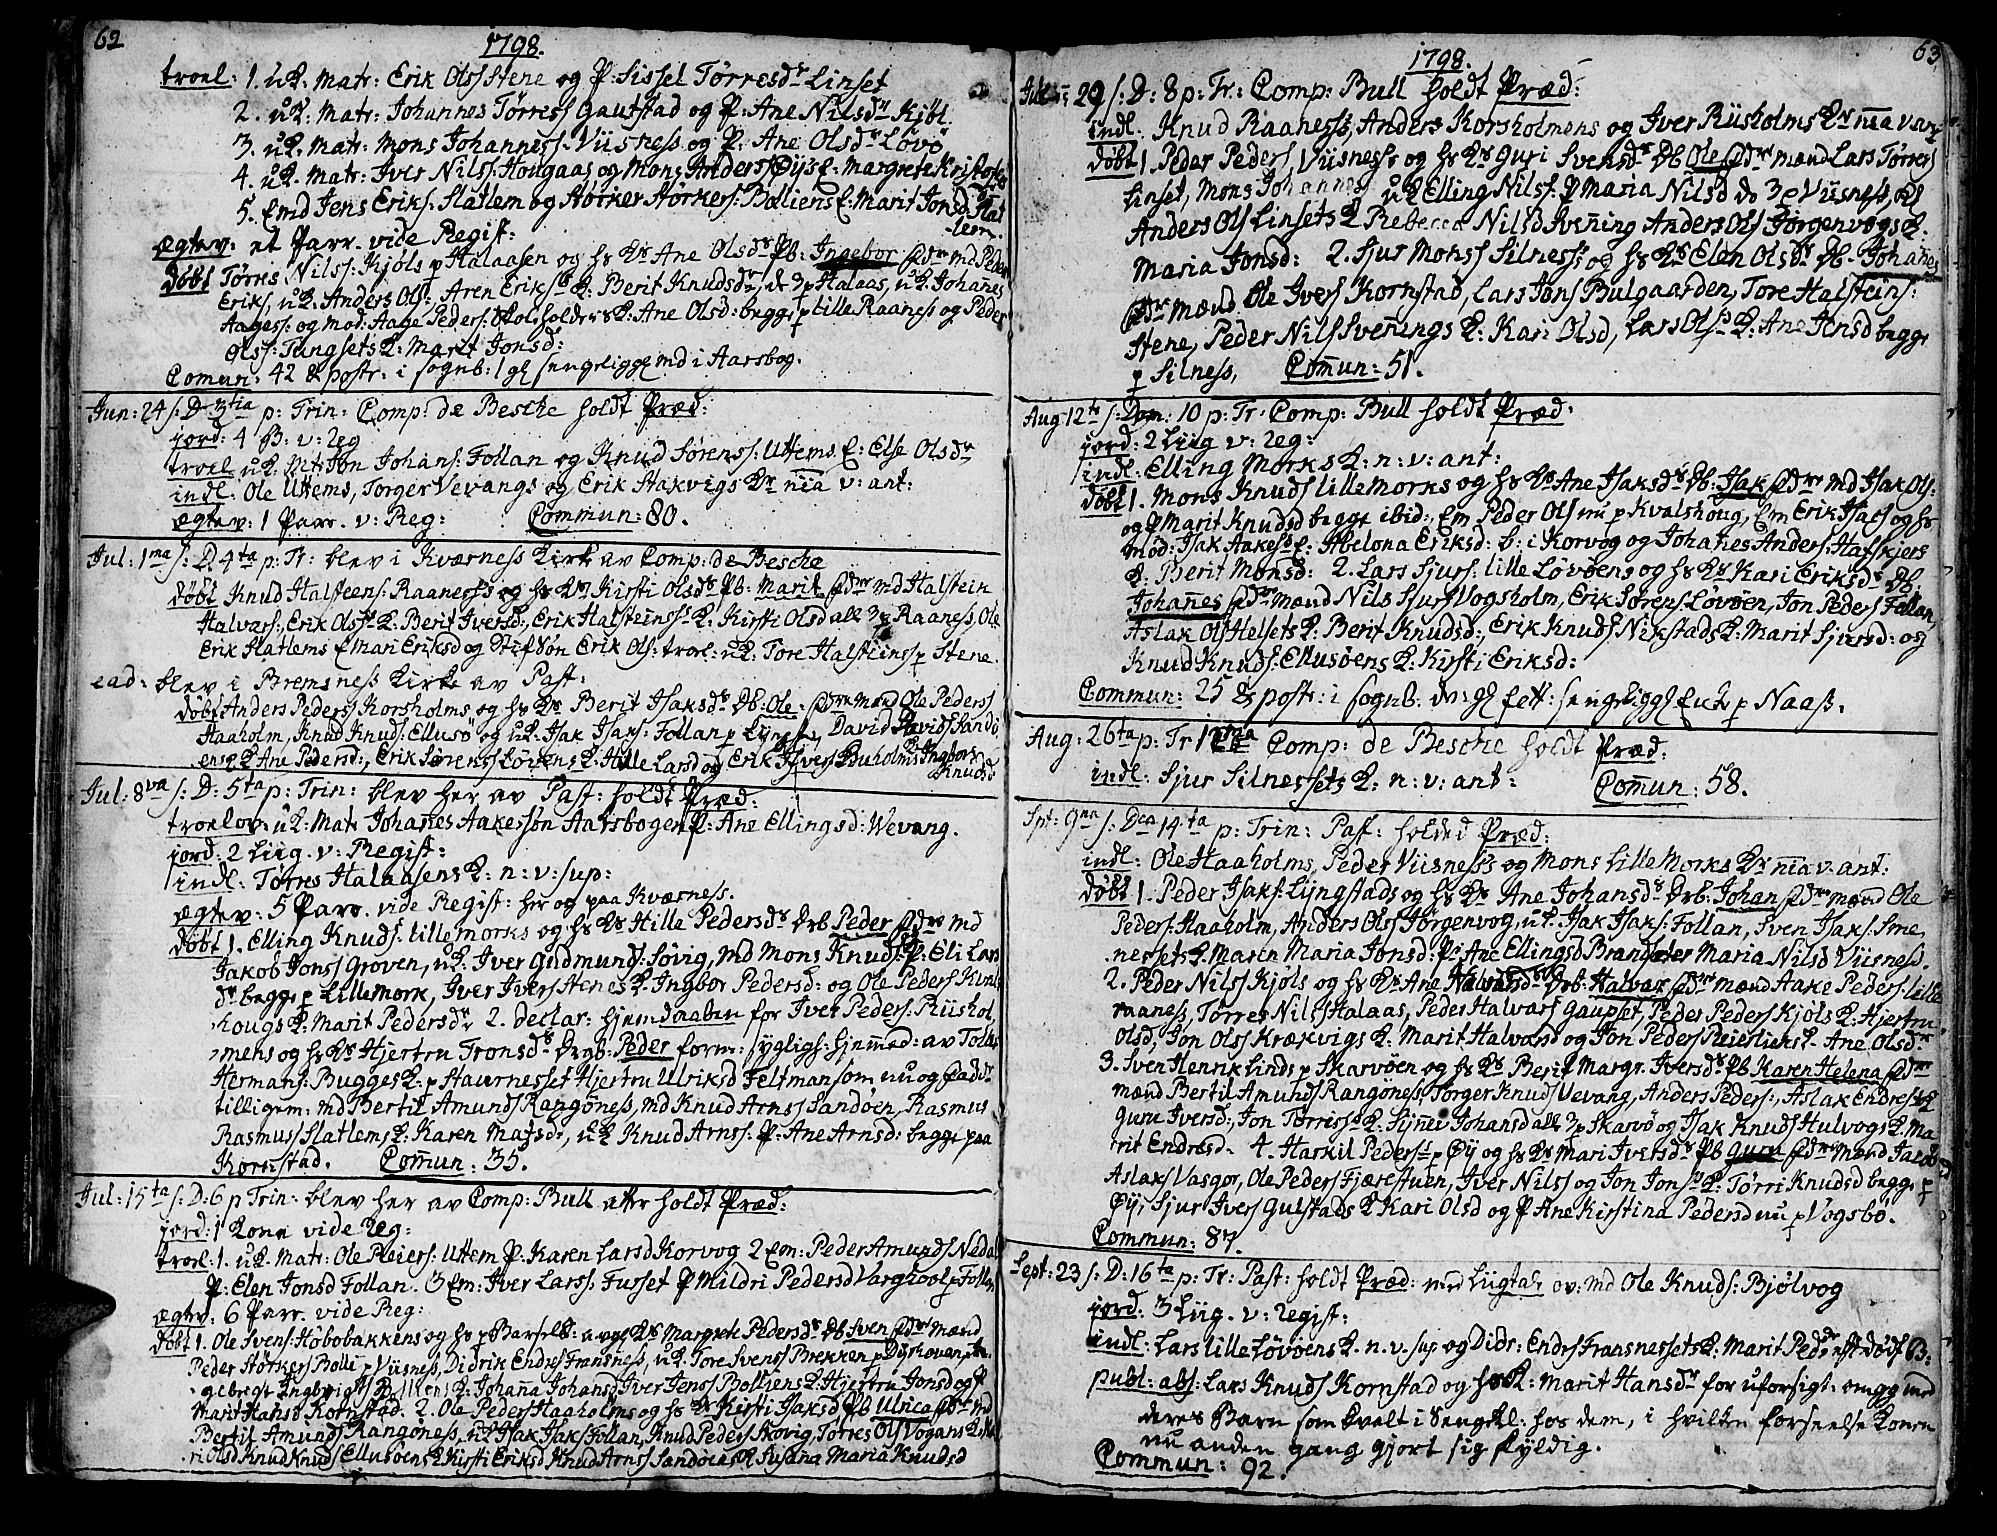 62
1798.
troel: 1. uK: Matr: Erik Olss Stene og P: Sissel Tørresdr Linset
2. uK: Matr: Johannes Tørress Gautstad og P: Ane Nilsdr Kjøl.
3. uK: Matr: Mons Johanness: Viisness og P: Ane Olsdr Løvø
4. uK: Matr: Iver Nilss: Hougaas og Mons Anders Øys E: Margrete Kristofers
5. Emd Jens Eriks: Slatlem og Størker Størkers: Bøliens E: Marit Jonsd Slat
lem.
Ægtev: et Parr. vide Regist:
døbt Tørres Nilss: Kjøls p Halaasen og hs Kr Ane Olsdr Pb: Ingebor Fdre md Peder
Eriks, uK: Anders Olss, Aren Eriks K: Berit Knudsdr, de 3 p Halaas, uK: Johanes
Aagess: og Mod: Aage Peders: K: Ane Olsd: begge p Lille Raaness og Peder
Olss: Tungsets K: Marit Jonsd:
Comun: 42 & postr: i sognb: sengeligge md i Aarsbog.
Jun: 24 s: D 3tia p: Trin: Comp: de Besche holdt Præd:
jord: 4 B: v: Reg
troel uK: Mtr Jon Johans: Follan og Knud Sørenss: Uttems E: Else Olsdr
indl: Ole Uttems, Torger Vevangs og Erik Stakvigs Kr nia v: ant:
Ægtev: 1 Parr. v: Reg: Commun: 80.
Jul: 1ma s: D. 4ta p: Tr: blev i Kværness Kirke av Comp: de Besche
døbt Knud Halsteens: Raaness og hs Kr Kirsti Olsdr Pb: Marit Fdre md Halstein
Halvars: Erik Olss K: Berit Iversd: Erik Halsteinss K: Kirsti Olsd alle 3 p Raaness, Ole
Erik Slatlems E Mari Eriksd og Stifsøn Erik Ols: troel: uK: Tore Halsteins p Stene.
ead: blev i Bremsness Kirke av Past:
døbt Anders Peders Korsholms og hs Kr Berit Isaksdr Db: Ole: Fdre Mænd Ole Peders
Haaholm, Knud Knuds: Ellusø og uK: Isak Isaks: Follan p Lyngst, David Davids Sandø
ens K Ane Pedersd:, Erik Sørens Løvens K: Hille Larsd og Erik Ivers Buholms K: Ingbor
Knudsd
Jul: 8va s: D: 5ta p: Trin: blev her av Past: holdt Præd:
troelov: uK: Matr Johanes Aakessøn Aarsbogen P: Ane Ellingsd: Wevang.
jord: 2 Liig. v: Regist:
indl: Tørres Halaasens K: n: v: sup:
Ægtev: 5 Parr. vide Regist: her og paa Kværness.
døbt 1. Elling Knuds: lille Morks og hs Kr Hille Pedersdr Drb Peder Fdre md
Jakob Jons Groven, uK: Iver Gudmunds: Søing, md Mons Knuds: P: Eli Lars
dr begge p Lille Mork, Iver Ivers Stenes K. Ingbor Pedersd: og Ole Peders Kval
hougs K: Marit Pedersdr 2. declar: hjemdaaben for Iver Peders: Riishol,
mens og hs Kr Hjertru Tronsdr Drgb: Peder form: sygligh: hjemed: av Tolder
Hermans: Bugges K: p Haurnesset Hjertru Ulriksd Feltman som nu og Fadr
tilligem: md Bertil Amunds Rangøness, md Knud Arnss Sandøen, Rasmus
Rasmus Slatlems K: Karen Matsd:, uK Knud Arnss: P: Ane Arnsd: begge paa
Kornstad. Comun: 35.
Jul: 15ta s: D: 6 p Trin: blev her av Comp: Bull efter holdt Præd:
jord: 1 Kone vide Reg:
troel: 1. uK: Matr: Ole Reiers: Uttem P: Karen Larsd Korvog 2 Em: Peder Amunds Nedal
P: Elen Jonsd Follan. 3 Em: Iver Larss: Furset P Mildri Pedersd Varghool p Follan
Ægtev: 6 Parr. vide Reg:
døbt 1. Ole Svens: Høbobakkens og hs p Barselb: Kr Margrete Pedersdr Db Sven Fdre Mænd
Peder Størkers Bolli p Viisness, Didrik Endres Fransness, uK: Tore Svens Brekken p
K: Johana Johansd Iver Jens Boliens K: Hjertru Jonsd og P
Marit Hansd Kornstad. 2. Ole Peders Haaholms og hs Kr Kirsti Isaksd Pb Ulrica Fdr md
Bertil Amunds Rangøness, uK Isak Isaks Follan, Knud Peders Skovig, Tørres Ols Vogans K
ri Olsd Knud Knuds Ellusøens K Kirsti Eriksd Knud Arnss Sandøens K Susana Maria Knudsd
63
1798.
Jul: 29 s: D: 8 p: Tr: Comp: Bull holdt Præd:
indl: Knud Raaness, Anders Korsholmens og Iver Riisholms Kr nia v ant
døbt 1. Peder Peders Viisness og hs Kr Guri Svensdr Db Ole Fdre mænd Lars Tørres
Linset, Mons Johannes uK Elling Nils: P Maria Nilsd de 3 p Viisness, og
Anders Ols Linsets K Rebecca Nilsd Svening Anders Ols Jørgenvogs K.
Maria Jonsd: 2. Sjur Monss Silness og hs Kr Elen Olsdr Db. Johanes
Fdre mænd Ole Ivers Kornstad, Lars Jons Bulgaarden, Tore Halsteins:
Stene, Peder Nils Svenings K: Kari Olsd, Lars Ols K: Ane Jensd begge
p Silness, Comun: 51.
Aug 12te s: Dom: 10 p: Tr: Comp: Bull holdt Præd:
jord: 2 Liig v: Reg:
indl: Elling Morks K: n: v: ant:
døbt 1. Mons Knuds lille Morks og hs Kr Ane Isaksdr Db: Isak Fdre md Isak Ols:
og P Marit Knudsd begge ibid:, Em Peder Ols nu p Kvalshoug, Em Erik Isaks og hs
mod: Isak Aakess E: Abelona Eriksd: b: i Korvog og Johanes Anders: Hafskjers
K: Berit Monsd: 2. Lars Sjurs: lille Løvøens og hs Kr Kari Eriksdr Db.
Johannes Fdre mænd Nils Sjurs Vogsholm, Erik Sørens Løvøen, Jon Peders Follan,
Aslak Ols Helsets K: Berit Knudsd:, Erik Knuds Nikstads K: Marit Sjursd: og
Knud Knuds: Ellusøens K: Kirsti Eriksd:
Commun: 25 & postr: i sognb. sengeligg: Enke p Naass.
Aug: 26ta p: Tr 12ma Comp: de Besche holdt Præd:
indl: Sjur Silnessets K: n: v: ant: Comun: 58.
Spt: 9na s: Dca 14ta p: Trin: Past: holded Præd:
indl: Ole Haaholms, Peder Viisness og Mons Lille Morks Kr nia v: ant:
døbt 1. Peder Isaks: Lyngstads og hs Kr Ane Johansdr Drb: Johan Fdre mænd Ole
Peders: Haaholm, Anders Ols Jørgenvog, uK: Isak Isaks: Follan, Sven Isaks: Sme,
nessets K. Maren Maria Jonsd: P: Ane Ellingsd Brandseter Maria Nilsd Viisness.
2. Peder Nils Kjøls og hs Kr Ane Halvarsdr Drb: Halvar Fdre mænd Aake Peders: lille
raaness, Tørres Nils Halaas, Peder Halvars Gaupset, Peder Peders Kjøls K: Hjertru
Olsd, Jon Ols Krækvigs K: Marit Halvarsd og Jon Peders Reierliens K. Ane Olsdr
3. Sven Henrik Linds p Skarvøen og hs Kr Berit Margr: Iversdr Pb Karen Helena Fdre
mænd Bertil Amunds Rangøness, Torger Knuds Vevang, Anders Peders:, Aslak Endres K
Guru Iversd:, Jon Tørriss K: Synnev Johansd alle 3 p Skarvø og Isak Knuds Hulvogs K. Ma
rit Endresd. 4. Harkil Peders p Øy og hs Kr Mari Iversdr Pb Guru Fdre Mænd Jacob
Aslaks Vasgor, Ole Peders Fjærestuen, Iver Nilss og Jon Jons K: Tørri Knudsd begge p
Øy, Sjur Ivers Gulstads K Kari Olsd og P Ane Kirstina Pedersd nu p Vogsbø.
Commun: 87.
Sept: 23 s: D: 16ta p: Tr: Past: holdt Præd: med Liigtale ov: md Ole Knuds: Bjølvog
jord: 3 Liig. v: Regist:
indl: Lars lille Løvøens K. n. v. sup og Didr: Endrs Fransnessets K: Marit Ped: dødf B:
publ: abs: Lars Knuds Kornstad og hs K: Marit Hansdr for uforsigt: omgg med
deres Barn som Kvalt i Sengekl: hos dem, i hvilken forseelse Konen
nu anden gang gjort sig skyldig.
Commun: 92.